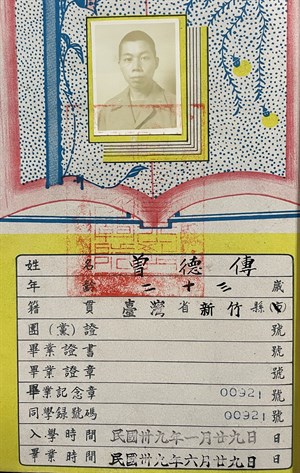 姓名 曾德傳
年齡 二十三 歲
籍貫 臺灣省新竹縣
團(黨)證 號
畢業證書 號
畢業證章 號
畢業記念章 00921 號
同學錄號碼 00921 號
入學時間 民國卅九年一月廿九日 日
畢業時間 民國卅九年六月廿九日 日